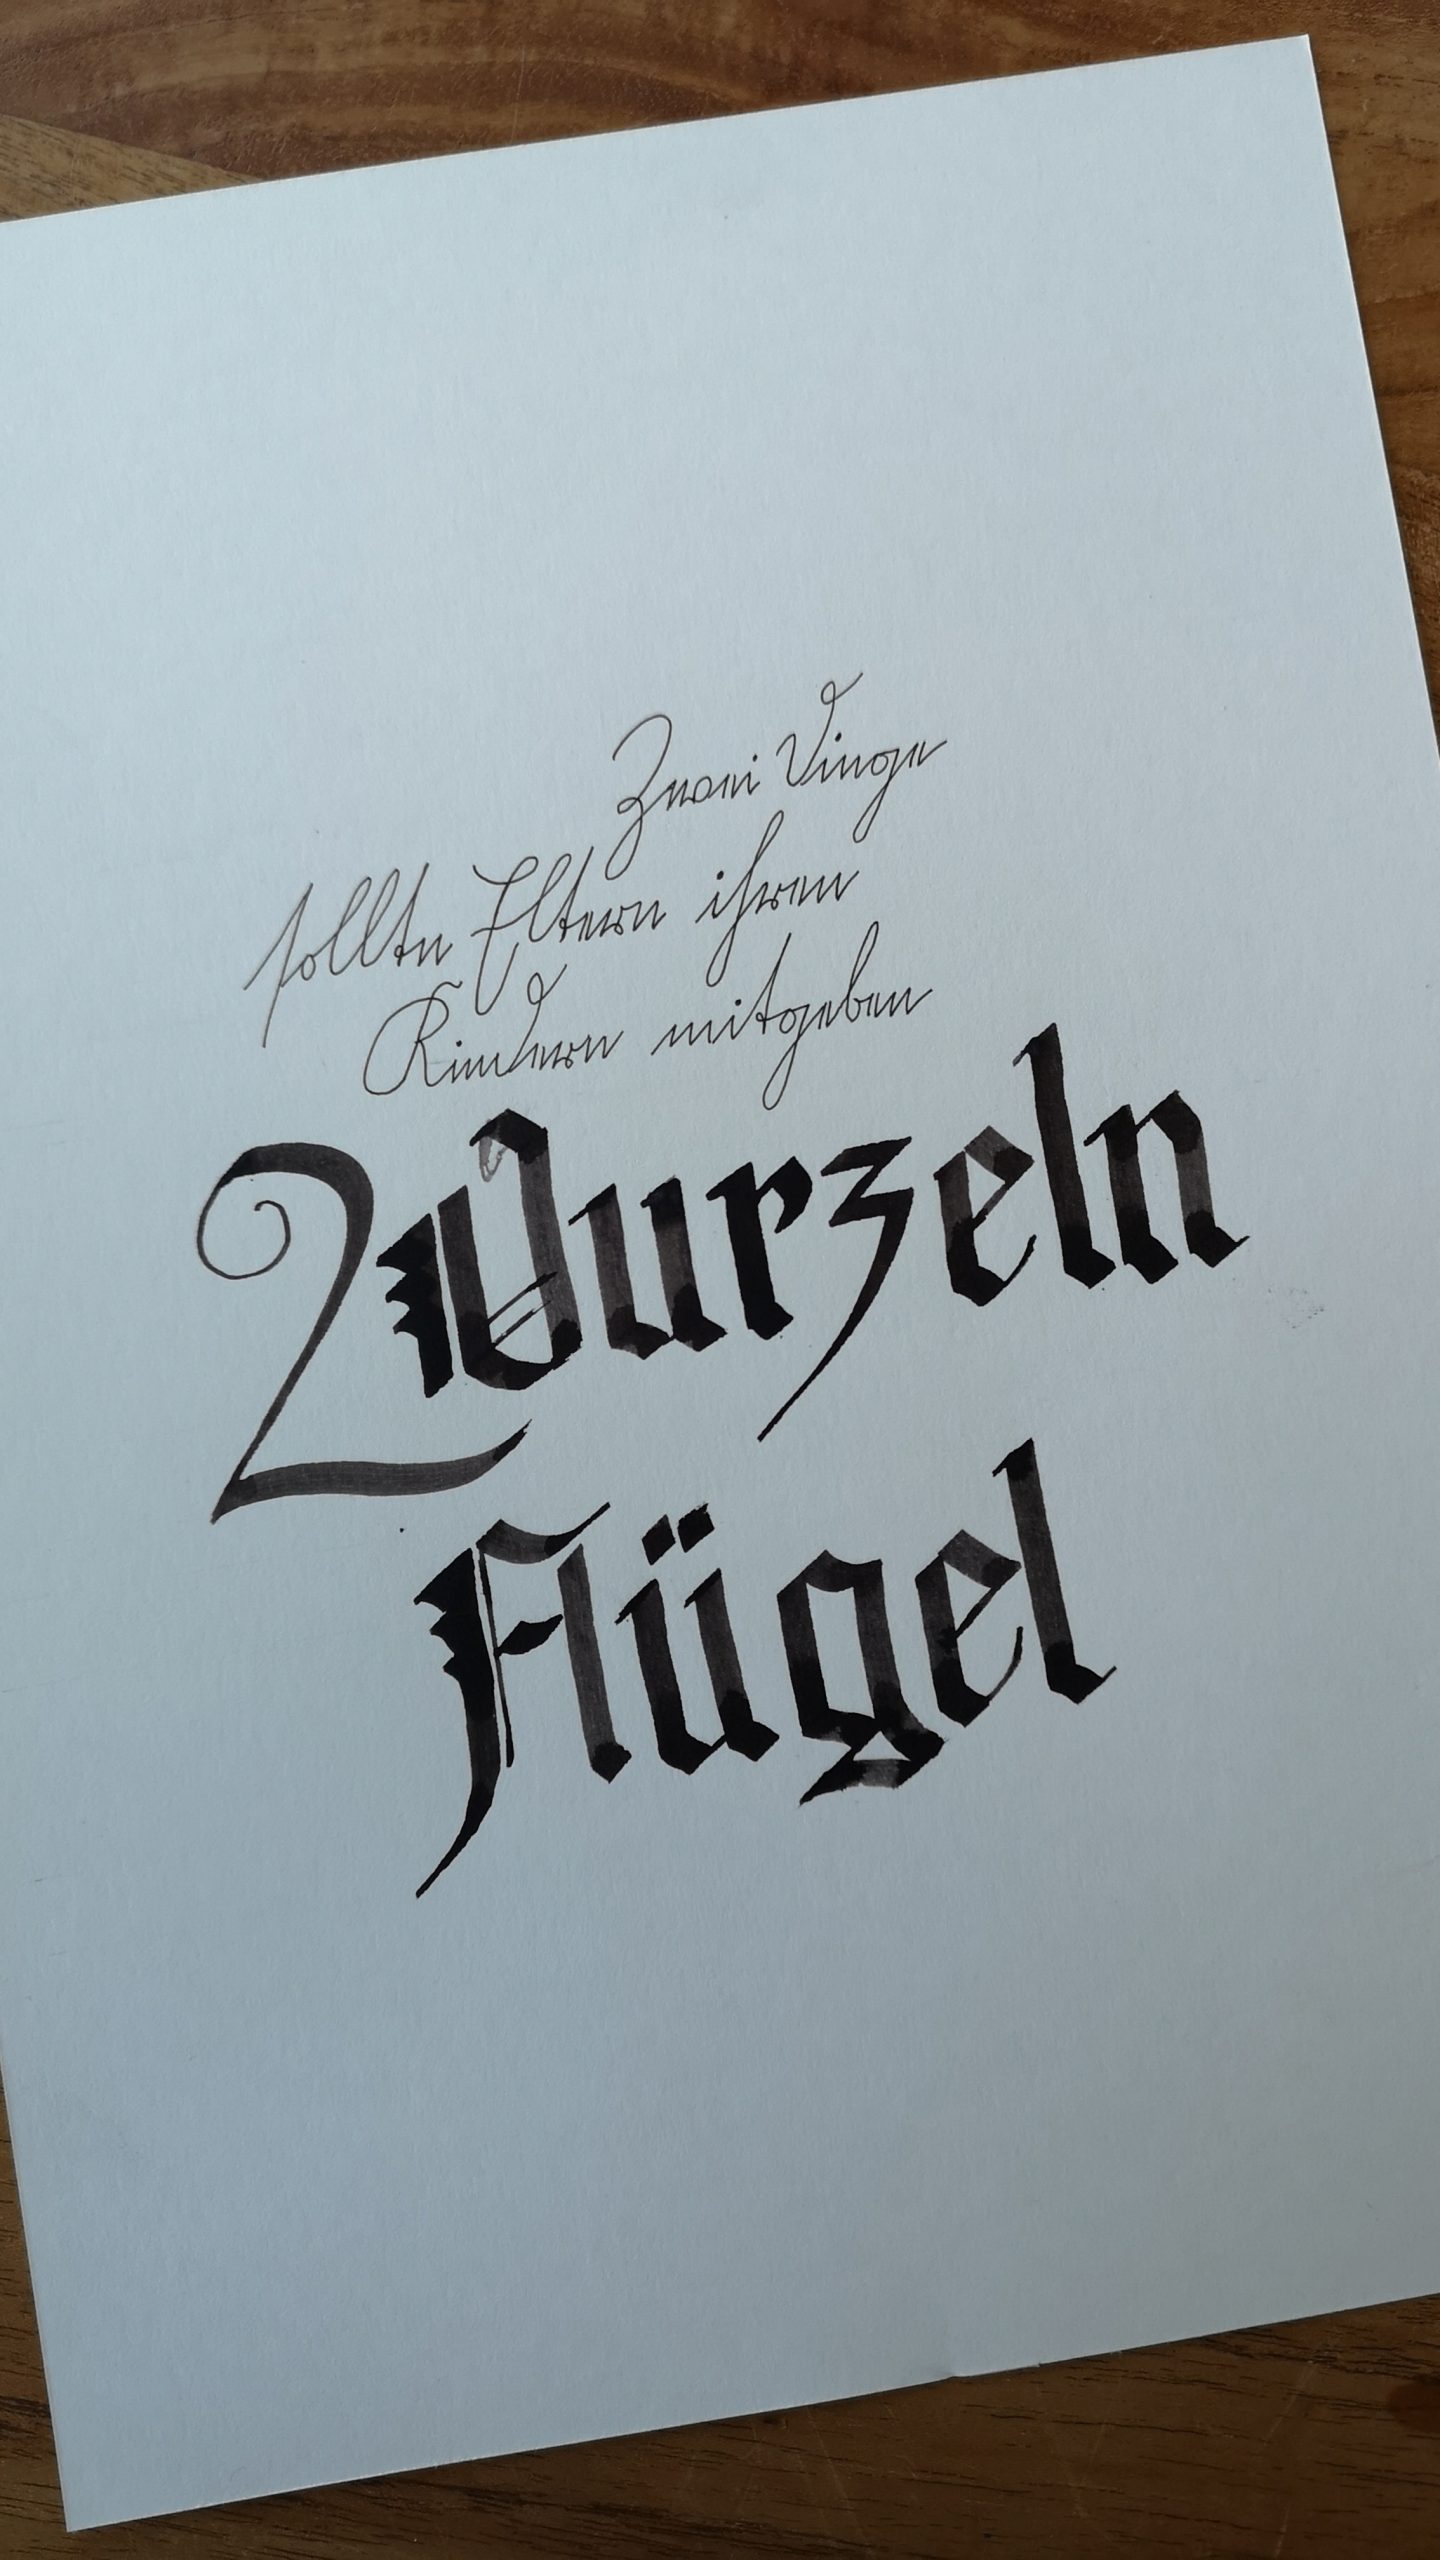 Zwei Dinge
sollten Eltern ihren
Kindern mitgeben
Wurzeln
Flügel